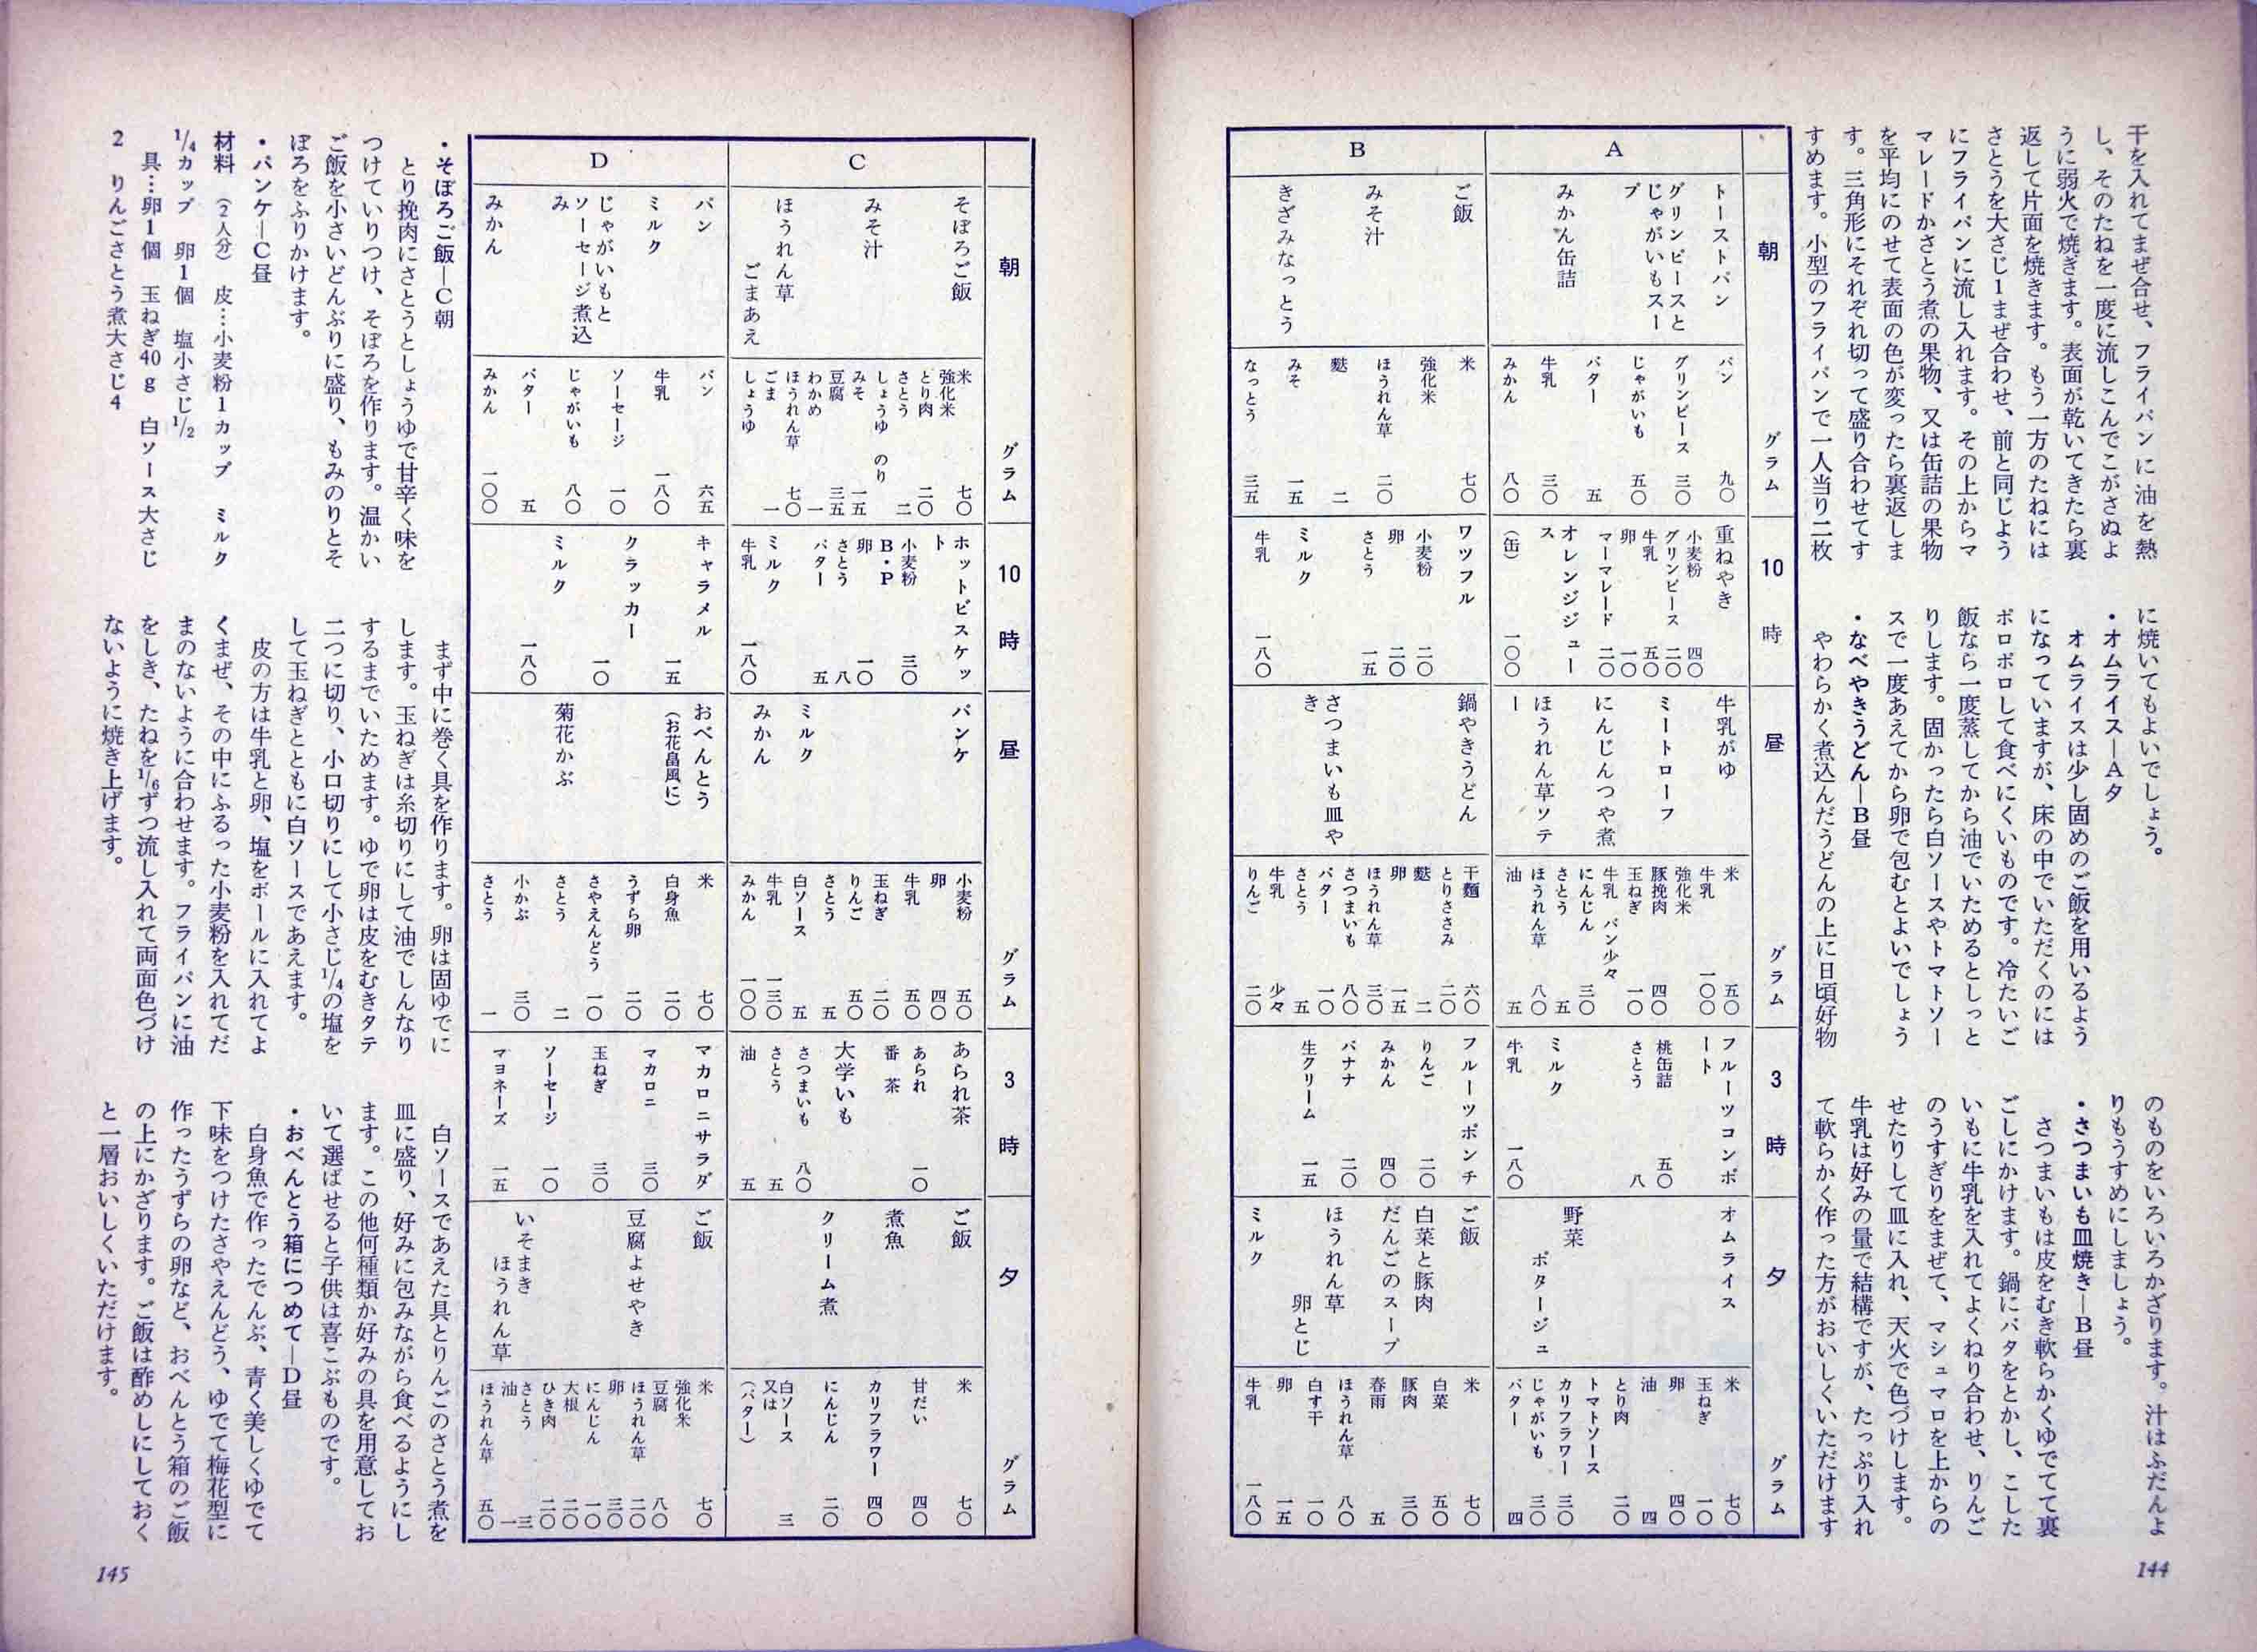 干を入れてまぜ合せ、フライパンに油を熱
し、そのたねを一度に流しこんでこがさぬよ
うに弱火で焼きます。表面が乾いてきたら裏
返して片面を焼きます。もう一方のたねには
さとうを大さじ1まぜ合わせ、前と同じよう
にフライパンに流し入れます。その上からマ
マレードかさとう煮の果物、又は缶詰の果物
を平均にのせて表面の色が変ったら裏返しま
す。三角形にそれぞれ切って盛り合わせてす
すめます。小型のフライパンで一人当り二枚
に焼いてもよいでしょう。
・オムライス—A夕
オムライスは少し固めのご飯を用いるよう
になっていますが、床の中でいただくのには
ボロボロして食べにくいものです。冷たいご
飯なら一度蒸してから油でいためるとしっと
りします。固かったら白ソースやトマトソー
スで一度あえてから卵で包むとよいでしょう
・なべやきうどん—B昼
やわらかく煮込んだうどんの上に日頃好物
のものをいろいろかざります。汁はふだんよ
りもうすめにしましょう。
・さつまいも皿焼き—B昼
さつまいもは皮をむき軟らかくゆでて裏
ごしにかけます。鍋にバタをとかし、こした
いもに牛乳を入れてよくねり合わせ、りんご
のうすぎりをまぜて、マシュマロを上からの
せたりして皿に入れ、天火で色づけします。
牛乳は好みの量で結構ですが、たっぷり入れ
て軟らかく作った方がおいしくいただけます
朝
グラム
10時
昼
グラム
3時
夕
グラム
A
トーストパン
グリンピースと
じゃがいもスー
プ
みかん缶詰
パン 九〇
グリンピース 三〇
じゃがいも 五〇
バター 五
牛乳 三〇
みかん 八〇
重ねやき
小麦粉 四〇
グリンピース 二〇
牛乳 五〇
卵 一〇
マーマレード 二〇
オレンジジュー
ス
(缶) 一〇〇
牛乳がゆ
ミートローフ
にんじんつや煮
ほうれん草ソテ
ー
米 五〇
牛乳 一〇〇
強化米
豚挽肉 四〇
玉ねぎ 一〇
牛乳 パン少々
にんじん 三〇
さとう 五
ほうれん草 八〇
油 五
フルーツコンポ
ート
桃缶詰 五〇
さとう 八
ミルク
牛乳 一八〇
オムライス
野菜
ポタージュ
米 七〇
玉ねぎ 一〇
卵 四〇
油 四
とり肉 二〇
トマトソース
カリフラワー 三〇
じゃがいも 三〇
バター 四
B
ご飯
みそ汁
きざみなっとう
米 七〇
強化米
ほうれん草 二〇
麩 二
みそ 一五
なっとう 三五
ワッフル
小麦粉 二〇
卵 二〇
さとう 一五
ミルク
牛乳 一八〇
鍋やきうどん
さつまいも皿や
き
干麺 六〇
とりささみ 二〇
麩 二
卵 一五
ほうれん草 三〇
さつまいも 八〇
バター 一〇
さとう 五
牛乳 少々
りんご 二〇
フルーツポンチ
りんご 二〇
みかん 四〇
バナナ 二〇
生クリーム 一五
ご飯
白菜と豚肉
だんごのスープ
ほうれん草
卵とじ
ミルク
米 七〇
白菜 五〇
豚肉 三〇
春雨 五
ほうれん草 八〇
白す干 一〇
卵 一五
牛乳 一八〇
144
朝
グラム
10時
昼
グラム
3時
夕
グラム
C
そぼろご飯
みそ汁
ほうれん草
ごまあえ
米 七〇
強化米
とり肉 二〇
さとう 二
しょうゆ のり
みそ 一五
豆腐 三五
わかめ 一
ほうれん草 七〇
ごま 一
しょうゆ
ホットビスケッ
ト
小麦粉 三〇
B・P
卵 一〇
さとう 八
バター 五
ミルク
牛乳 一八〇
パンケ
ミルク
みかん
小麦粉 五〇
卵 四〇
牛乳 五〇
玉ねぎ 二〇
りんご 五〇
さとう 五
白ソース 五
牛乳 一三〇
みかん 一〇〇
あられ茶
あられ 一〇
番茶
大学いも
さつまいも 八〇
さとう 五
油 五
ご飯
煮魚
クリーム煮
米 七〇
甘だい 四〇
カリフラワー 四〇
にんじん 二〇
白ソース 三
又は
(バター)
D
パン
ミルク
じゃがいもと
ソーセージ煮込
み
みかん
パン 六五
牛乳 一八〇
ソーセージ 一〇
じゃがいも 八〇
バター 五
みかん 一〇〇
キャラメル 一五
クラッカー 一〇
ミルク 一八〇
おべんとう
(お花畠風に)
菊花かぶ
米 七〇
白身魚 二〇
うずら卵 二〇
さやえんどう 一〇
さとう 二
小かぶ 三〇
さとう 一
マカロニサラダ
マカロニ 三〇
玉ねぎ 三〇
ソーセージ 一〇
マヨネーズ 一五
ご飯
豆腐よせやき
いそまき
ほうれん草
米 七〇
強化米
豆腐 八〇
ほうれん草 二〇
卵 三〇
にんじん 一〇
大根 二〇
ひき肉 二〇
さとう 三
油 一
ほうれん草 五〇
・そぼろご飯—C朝
とり挽肉にさとうとしょうゆで甘辛く味を
つけていりつけ、そぼろを作ります。温かい
ご飯を小さいどんぶりに盛り、もみのりとそ
ぼろをふりかけます。
・パンケ—C昼
材料 (2人分) 皮…小麦粉1カップ ミルク
1/4カップ 卵1個 塩小さじ1/2
具…卵1個 玉ねぎ40g 白ソース大さじ
2 りんごさとう煮大さじ4
まず中に巻く具を作ります。卵は固ゆでに
します。玉ねぎは糸切りにして油でしんなり
するまでいためます。ゆで卵は皮をむきタテ
二つに切り、小口切りにして小さじ1/4の塩を
して玉ねぎとともに白ソースであえます。
皮の方は牛乳と卵、塩をボールに入れてよ
くまぜ、その中にふるった小麦粉を入れてだ
まのないように合わせます。フライパンに油
をしき、たねを1/6ずつ流し入れて両面色づけ
ないように焼き上げます。
白ソースであえた具とりんごのさとう煮を
皿に盛り、好みに包みながら食べるようにし
ます。この他何種類か好みの具を用意してお
いて選ばせると子供は喜こぶものです。
・おべんとう箱につめて—D昼
白身魚で作ったでんぶ、青く美しくゆでて
下味をつけたさやえんどう、ゆでて梅花型に
作ったうずらの卵など、おべんとう箱のご飯
の上にかざります。ご飯は酢めしにしておく
と一層おいしくいただけます。
145